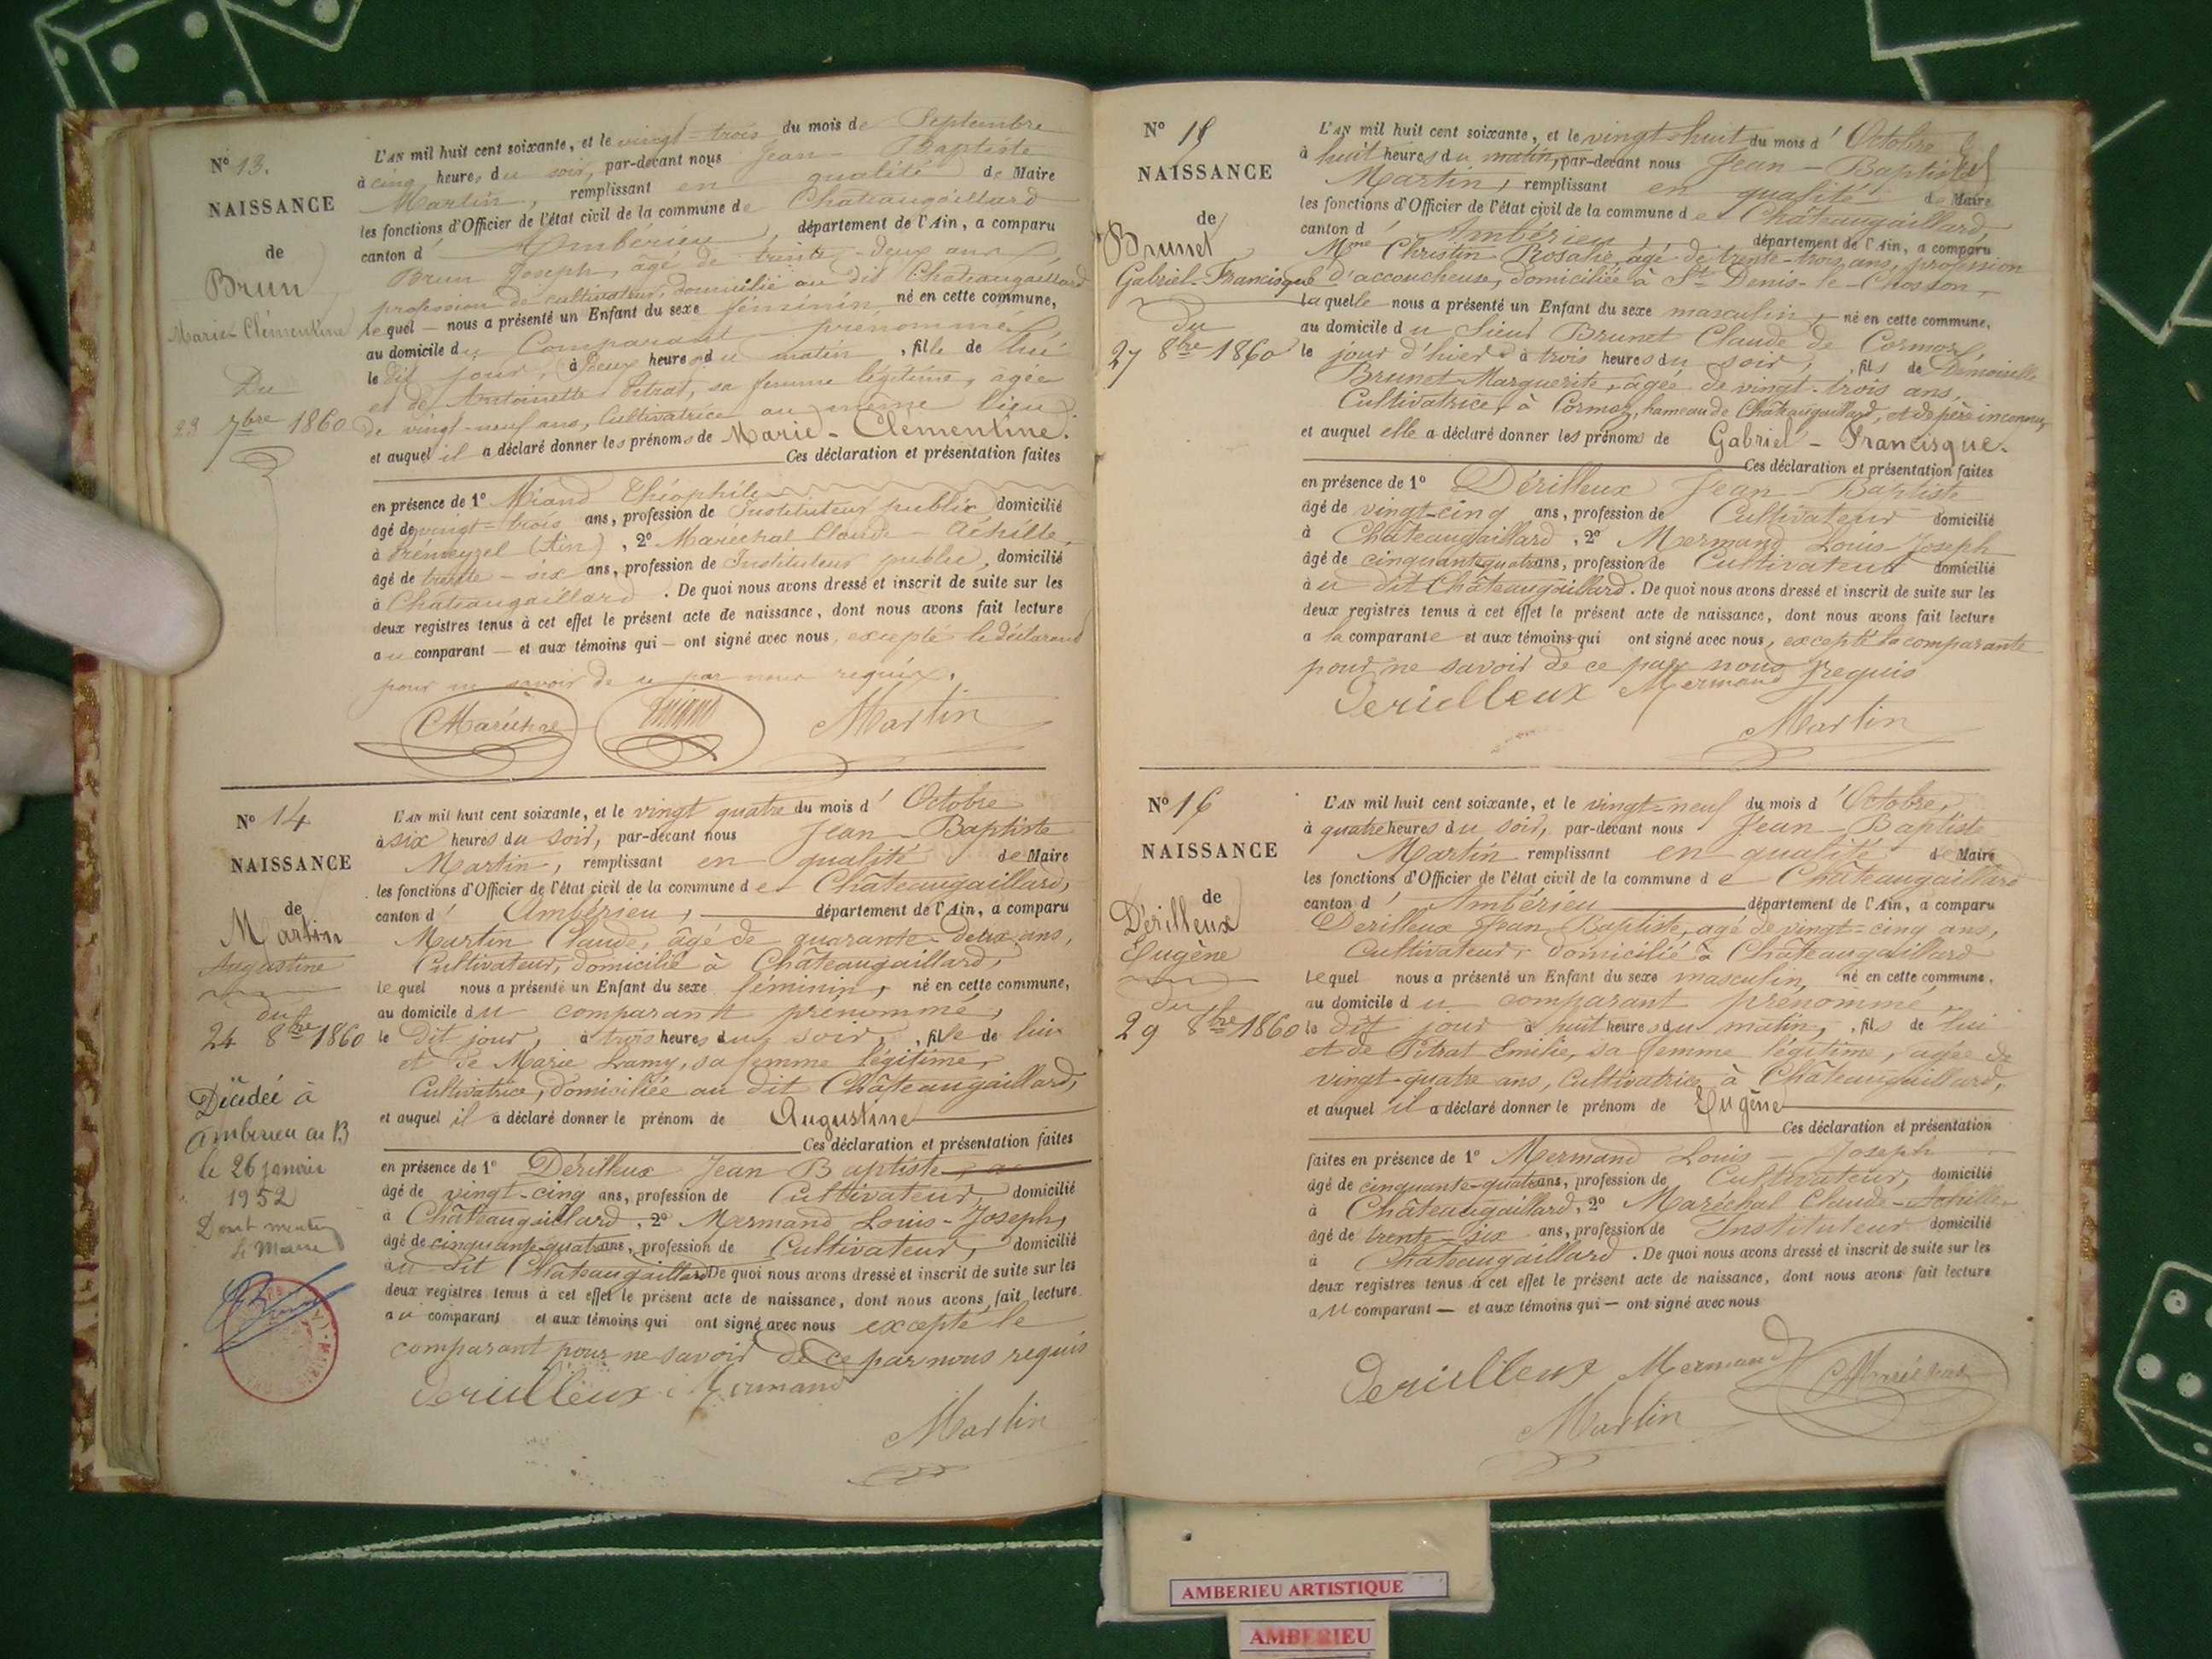 N° 13.
NAISSANCE
de
Brun
Marie-Clémentine
Du
23 7bre 1860
L'AN mil huit cent soixante, et le vingt=trois du mois de Septembre
à cinq heures du soir, par-devant nous Jean-Baptiste
Martin, remplissant en qualité de Maire
les fonctions d'Officier de l'état civil de la commune de Chateaugaillard
canton d'Ambérieu, département de l'Ain, a comparu
Brun Joseph, âgé de trente-deux ans,
profession de cultivateur, domicilié au dit Chateaugaillard
lequel — nous a présenté un Enfant du sexe féminin, né en cette commune,
au domicile du Comparant prénommé,
le dit jour, à Deux heures du matin, fille de lui
et de Antoinette Pitrat, sa femme légitime, âgée
de vingt-neuf ans, Cultivatrice au même lieu
et auquel il a déclaré donner les prénoms de Marie-Clémentine.
Ces déclaration et présentation faites
en présence de 1° Miand Théophile
âgé de vingt=trois ans, profession de Instituteur public domicilié
à Prémeyzel (Ain), 2° Maréchal Claude-Achille
âgé de trente-six ans, profession de Instituteur public, domicilié
à Chateaugaillard. De quoi nous avons dressé et inscrit de suite sur les
deux registres tenus à cet effet le présent acte de naissance, dont nous avons fait lecture
au comparant — et aux témoins qui — ont signé avec nous, excepté le déclarant
pour ne savoir de ce par nous requis.
Maréchal Miand Martin
N° 14
NAISSANCE
de
Martin
Augustine
du
24 8bre 1860
Décédée à
Ambérieu en B
le 26 janvier
1952
Dont mention
Le Maire
L'AN mil huit cent soixante, et le vingt quatre du mois d'Octobre
à six heures du soir, par-devant nous Jean-Baptiste
Martin, remplissant en qualité de Maire
les fonctions d'Officier de l'état civil de la commune de Châteaugaillard,
canton d'Ambérieu, département de l'Ain, a comparu
Martin Claude, âgé de quarante-deux ans,
Cultivateur, domicilié à Châteaugaillard,
lequel nous a présenté un Enfant du sexe féminin, né en cette commune,
au domicile du comparant prénommé,
le dit jour, à trois heures du soir, fille de lui
et de Marie Lamy, sa femme légitime,
Cultivatrice, domiciliée au dit Châteaugaillard,
et auquel il a déclaré donner le prénom de Augustine
Ces déclaration et présentation faites
en présence de 1° Dérilleux Jean Baptiste
âgé de vingt-cinq ans, profession de Cultivateur, domicilié
à Châteaugaillard, 2° Mermand Louis-Joseph,
âgé de cinquante-quatre ans, profession de Cultivateur, domicilié
au dit Châteaugaillard De quoi nous avons dressé et inscrit de suite sur les
deux registres tenus à cet effet le présent acte de naissance, dont nous avons fait lecture
au comparant et aux témoins qui ont signé avec nous excepté le
comparant pour ne savoir de ce par nous requis
Derilleux Mermand
Martin
N° 15
NAISSANCE
de
Brunet
Gabriel-Francisque
du
27 8bre 1860
L'AN mil huit cent soixante, et le vingt-huit du mois d'Octobre
à huit heures du matin, par-devant nous Jean-Baptiste
Martin, remplissant en qualité de Maire
les fonctions d'Officier de l'état civil de la commune de Châteaugaillard
canton d'Ambérieu, département de l'Ain, a comparu
Mme Christin Rosalie, âgé de trente-trois ans, profession
d'accoucheuse, domiciliée à St Denis-le-Chosson,
laquelle nous a présenté un Enfant du sexe masculin, né en cette commune,
au domicile du Sieur Brunet Claude de Cormoz,
le jour d'hier à trois heures du soir, fils de Demoiselle
Brunet Marguerite, âgée de vingt-trois ans,
Cultivatrice, à Cormoz, hameau de Châteaugaillard, et de père inconnu,
et auquel elle a déclaré donner les prénoms de Gabriel-Francisque.
Ces déclaration et présentation faites
en présence de 1° Dérilleux Jean-Baptiste
âgé de vingt-cinq ans, profession de Cultivateur domicilié
à Châteaugaillard, 2° Mermand Louis-Joseph
âgé de cinquante-quatre ans, profession de Cultivateur domicilié
au dit Châteaugaillard. De quoi nous avons dressé et inscrit de suite sur les
deux registres tenus à cet effet le présent acte de naissance, dont nous avons fait lecture
a la comparante et aux témoins qui ont signé avec nous, excepté la comparante
pour ne savoir de ce par nous requis
Derielleux Mermand
Martin
N° 16
NAISSANCE
de
Dérilleux
Eugène
du
29 8bre 1860
L'AN mil huit cent soixante, et le vingt=neuf du mois d'Octobre,
à quatre heures du soir, par-devant nous Jean-Baptiste
Martin remplissant en qualité de Maire
les fonctions d'Officier de l'état civil de la commune de Châteaugaillard
canton d'Ambérieu département de l'Ain, a comparu
Derilleux Jean Baptiste, âgé de vingt=cinq ans,
Cultivateur, domicilié à Châteaugaillard
lequel nous a présenté un Enfant du sexe masculin, né en cette commune,
au domicile du comparant prénommé,
le dit jour à huit heures du matin, fils de lui
et de Pitrat Emilie, sa femme légitime, âgée de
vingt-quatre ans, Cultivatrice à Châteaugaillard,
et auquel il a déclaré donner le prénom de Eugène
Ces déclaration et présentation
faites en présence de 1° Mermand Louis-Joseph
âgé de cinquante-quatre ans, profession de Cultivateur, domicilié
à Châteaugaillard, 2° Maréchal Claude-Achille,
âgé de trente-six ans, profession de Instituteur domicilié
à Chateaugaillard. De quoi nous avons dressé et inscrit de suite sur les
deux registres tenus à cet effet le présent acte de naissance, dont nous avons fait lecture
au comparant — et aux témoins qui — ont signé avec nous
Derilleux Mermand Maréchal
Martin
AMBERIEU ARTISTIQUE
AMBERIEU